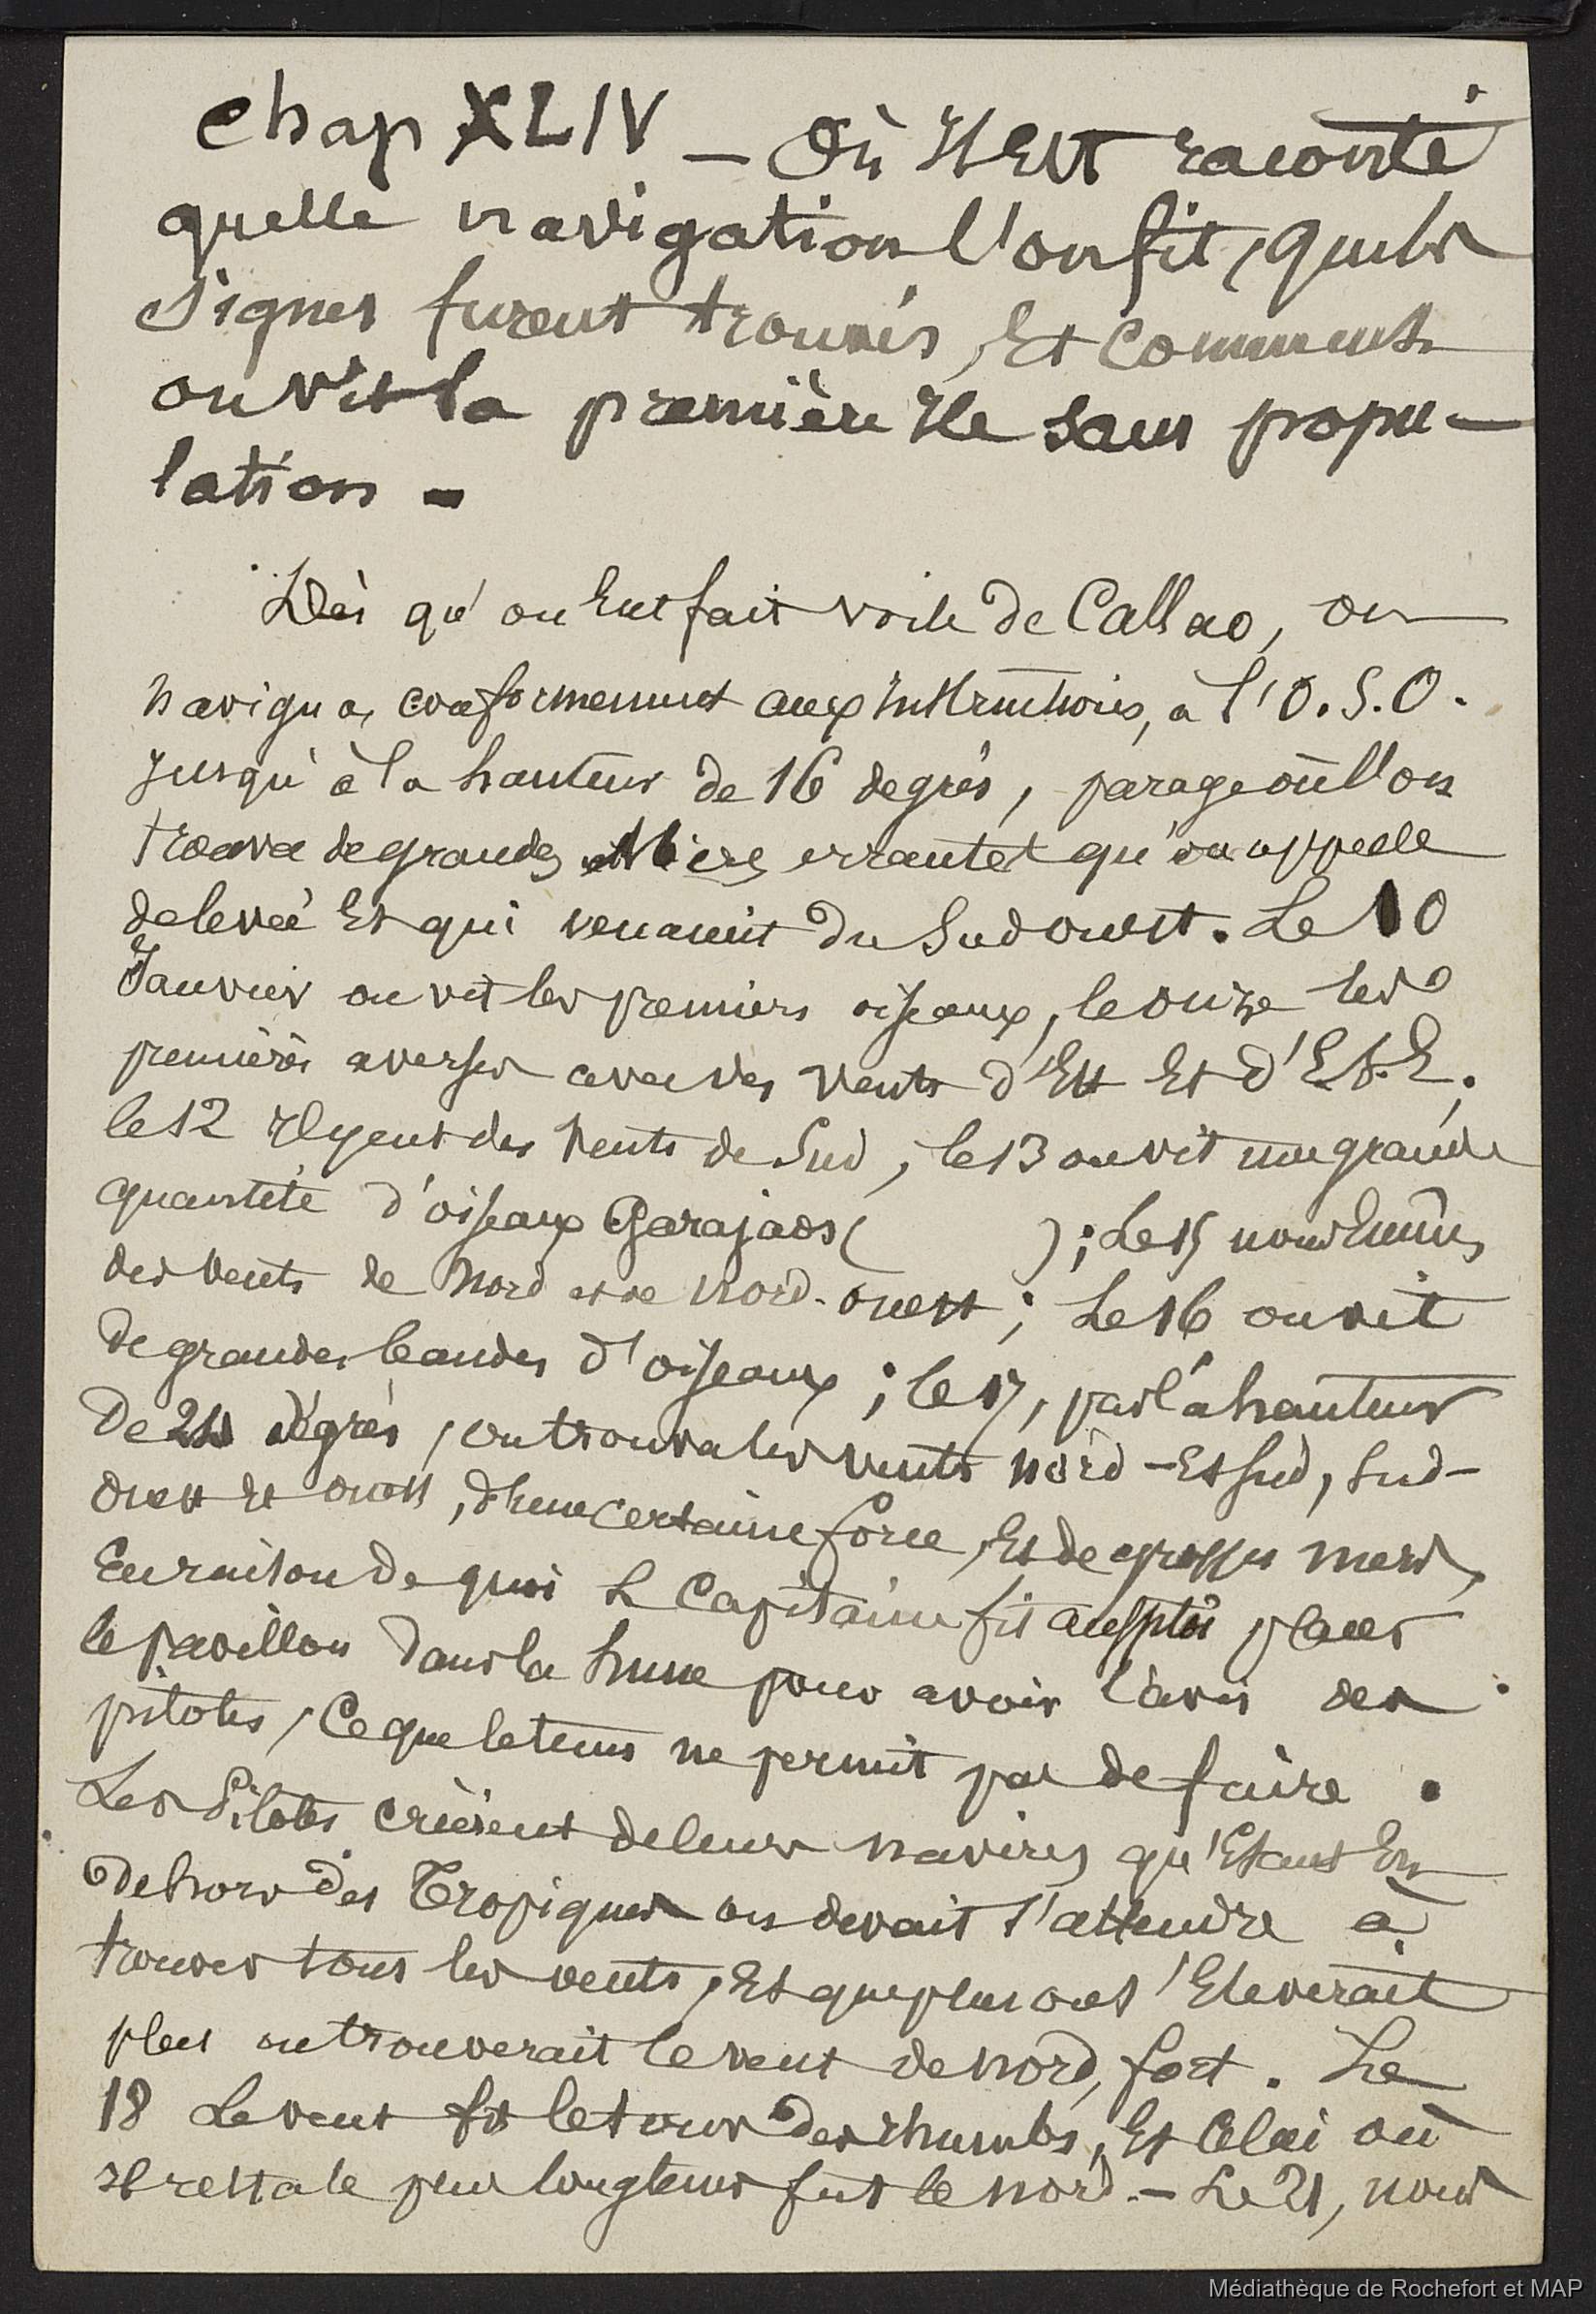 Chap XLIV — Où Il Est raconté
quelle navigation l'on fit, quels
signes furent trouvés, Et comment
on vit la première Ile sans popu-
lation -
Dès qu'on Eut fait voile de Callao, on
navigua, conformement aux Instructions, à l'O.S.O.
jusqu'à la hauteur de 16 degrés, parage où l'on
trouva de grandes errantes qu'on appelle
de levée Et qui venaient du Sud ouest. Le 10
Janvier on vit les premiers oiseaux, le onze les
premières averses avec des vents d'Est Et d'E.S.E;
le 12 Il y eut des vents de Sud, le 13 on vit une grande
quantité d'oiseaux Garajaos ( ); Le 15 nous Eûmes
des vents de Nord et de Nord-ouest; Le 16 on vit
de grandes bandes d'oiseaux; le 17, par la hauteur
De degrés, on trouva les vents Nord-Et Sud, Sud-
ouest Et ouest, d'une certaine force, Et de grosses mers,
En raison de quoi le Capitaine fit aussitôt placer
le pavillon dans la hune pour avoir l'avis des
pilotes, Ce que le tems ne permit pas de faire.
Les Pilotes crièrent de leurs navires qu'Etant En
dehors des Tropiques on devait s'attendre à
trouver tous les vents, Et que plus on s'Eleverait
plus on trouverait le vent de nord, fort. Le
18 Le vent fit le tour des rhumbs, Et Celui où
Il resta le plus longtems fut le nord. - Le 21, nous
Médiathèque de Rochefort et MAP